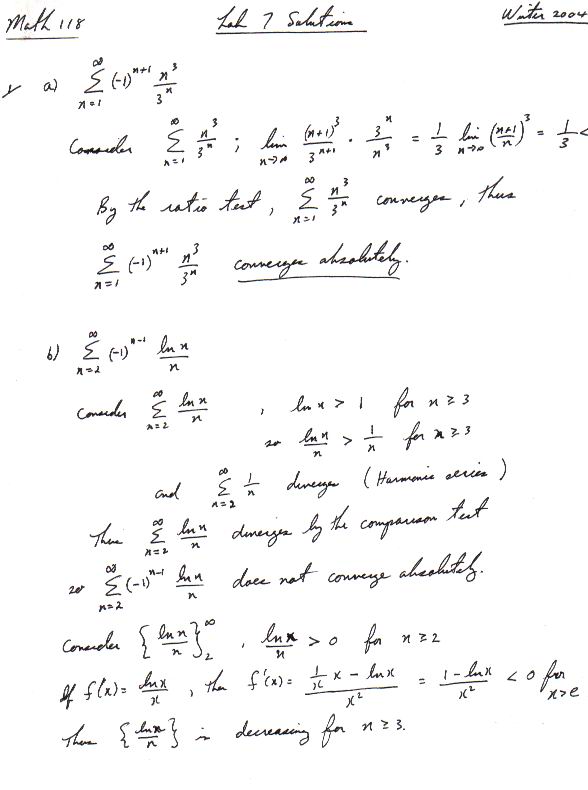 Math 118 Lab 7 Solutions Winter 2004
1 a) ∑_{n=1}^{∞} (-1)^{n+1} n^3/3^n
Consider ∑_{n=1}^{∞} n^3/3^n ; lim_{n→∞} (n+1)^3/3^{n+1} · 3^n/n^3 = 1/3 lim_{n→∞} ((n+1)/n)^3 = 1/3 <
By the ratio test, ∑_{n=1}^{∞} n^3/3^n converges, thus
∑_{n=1}^{∞} (-1)^{n+1} n^3/3^n converges absolutely.
b) ∑_{n=2}^{∞} (-1)^{n-1} ln n/n
Consider ∑_{n=2}^{∞} ln n/n , ln n > 1 for n ≥ 3
so ln n/n > 1/n for n ≥ 3
and ∑_{n=2}^{∞} 1/n diverges (Harmonic series)
Thus ∑_{n=2}^{∞} ln n/n diverges by the comparison test
so ∑_{n=2}^{∞} (-1)^{n-1} ln n/n does not converge absolutely.
Consider {ln n/n}_2^∞ , ln n/n > 0 for n ≥ 2
If f(x) = ln x/x , then f'(x) = (1/x x - ln x)/x^2 = (1 - ln x)/x^2 < 0 for x > e
Thus {ln n/n} is decreasing for n ≥ 3.